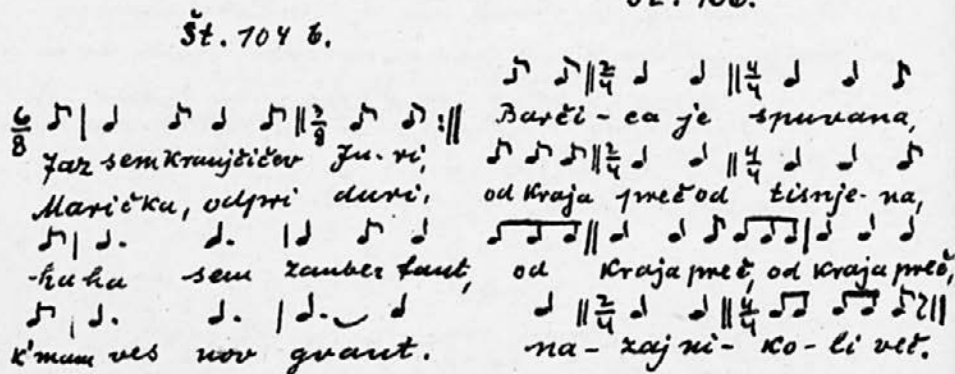 Št. 104 b.
6/8 3/8
Jaz sem Kranjčičev Ju-ri,
Marička, odpri duri,
-haha sem zauber fant,
k'mam ves nov gvant.
2/4 4/4
Barči-ca je spuvana,
2/4 4/4
od kraja preč od tisnje-na,
od kraja preč, od kraja preč,
2/4 4/4
na-zaj ni-ko-li več.